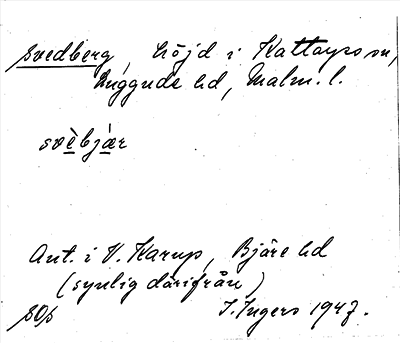 Svedberg, höjd i Kattarps sn,
Luggude hd, Malm. l.
svèbjær
Ant. i V. Karup, Bjäre hd
(synlig därifrån)
SOp I. Ingers 1947.